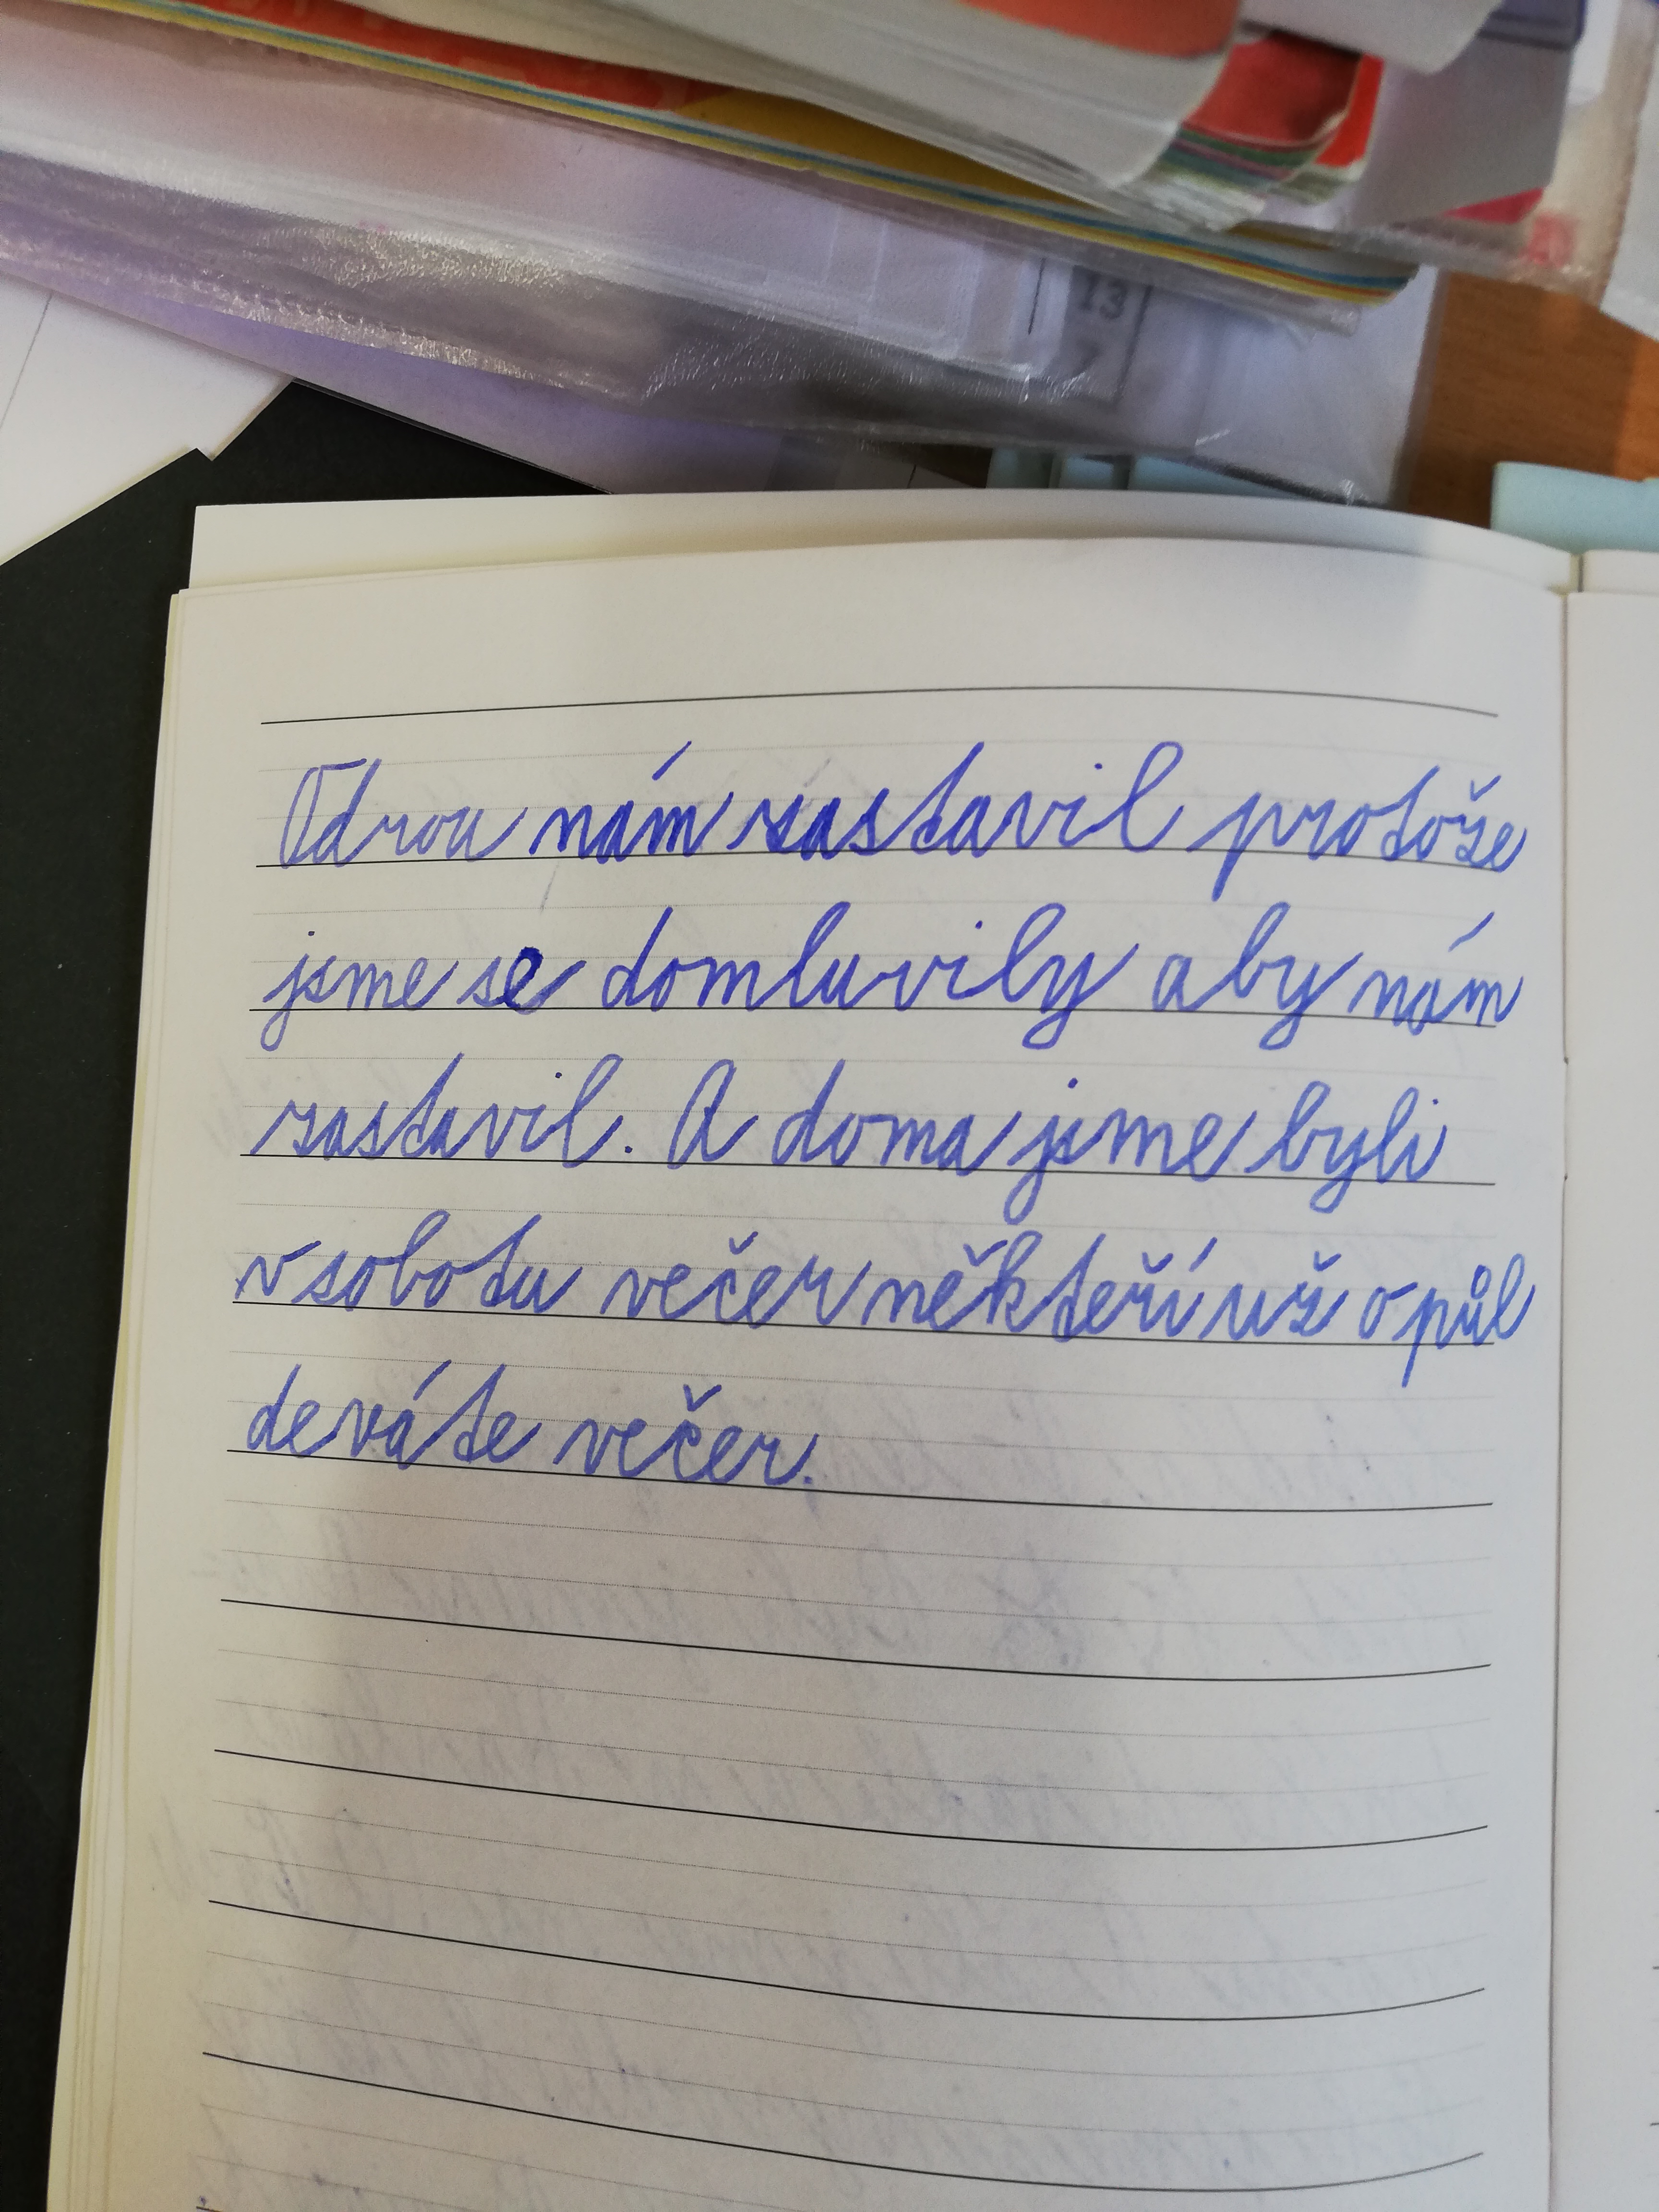 13
7
Odrou nám zastavil protože
jsme se domluvily aby nám
zastavil. A doma jsme byli
v sobotu večer někteří už o půl
deváte večer.